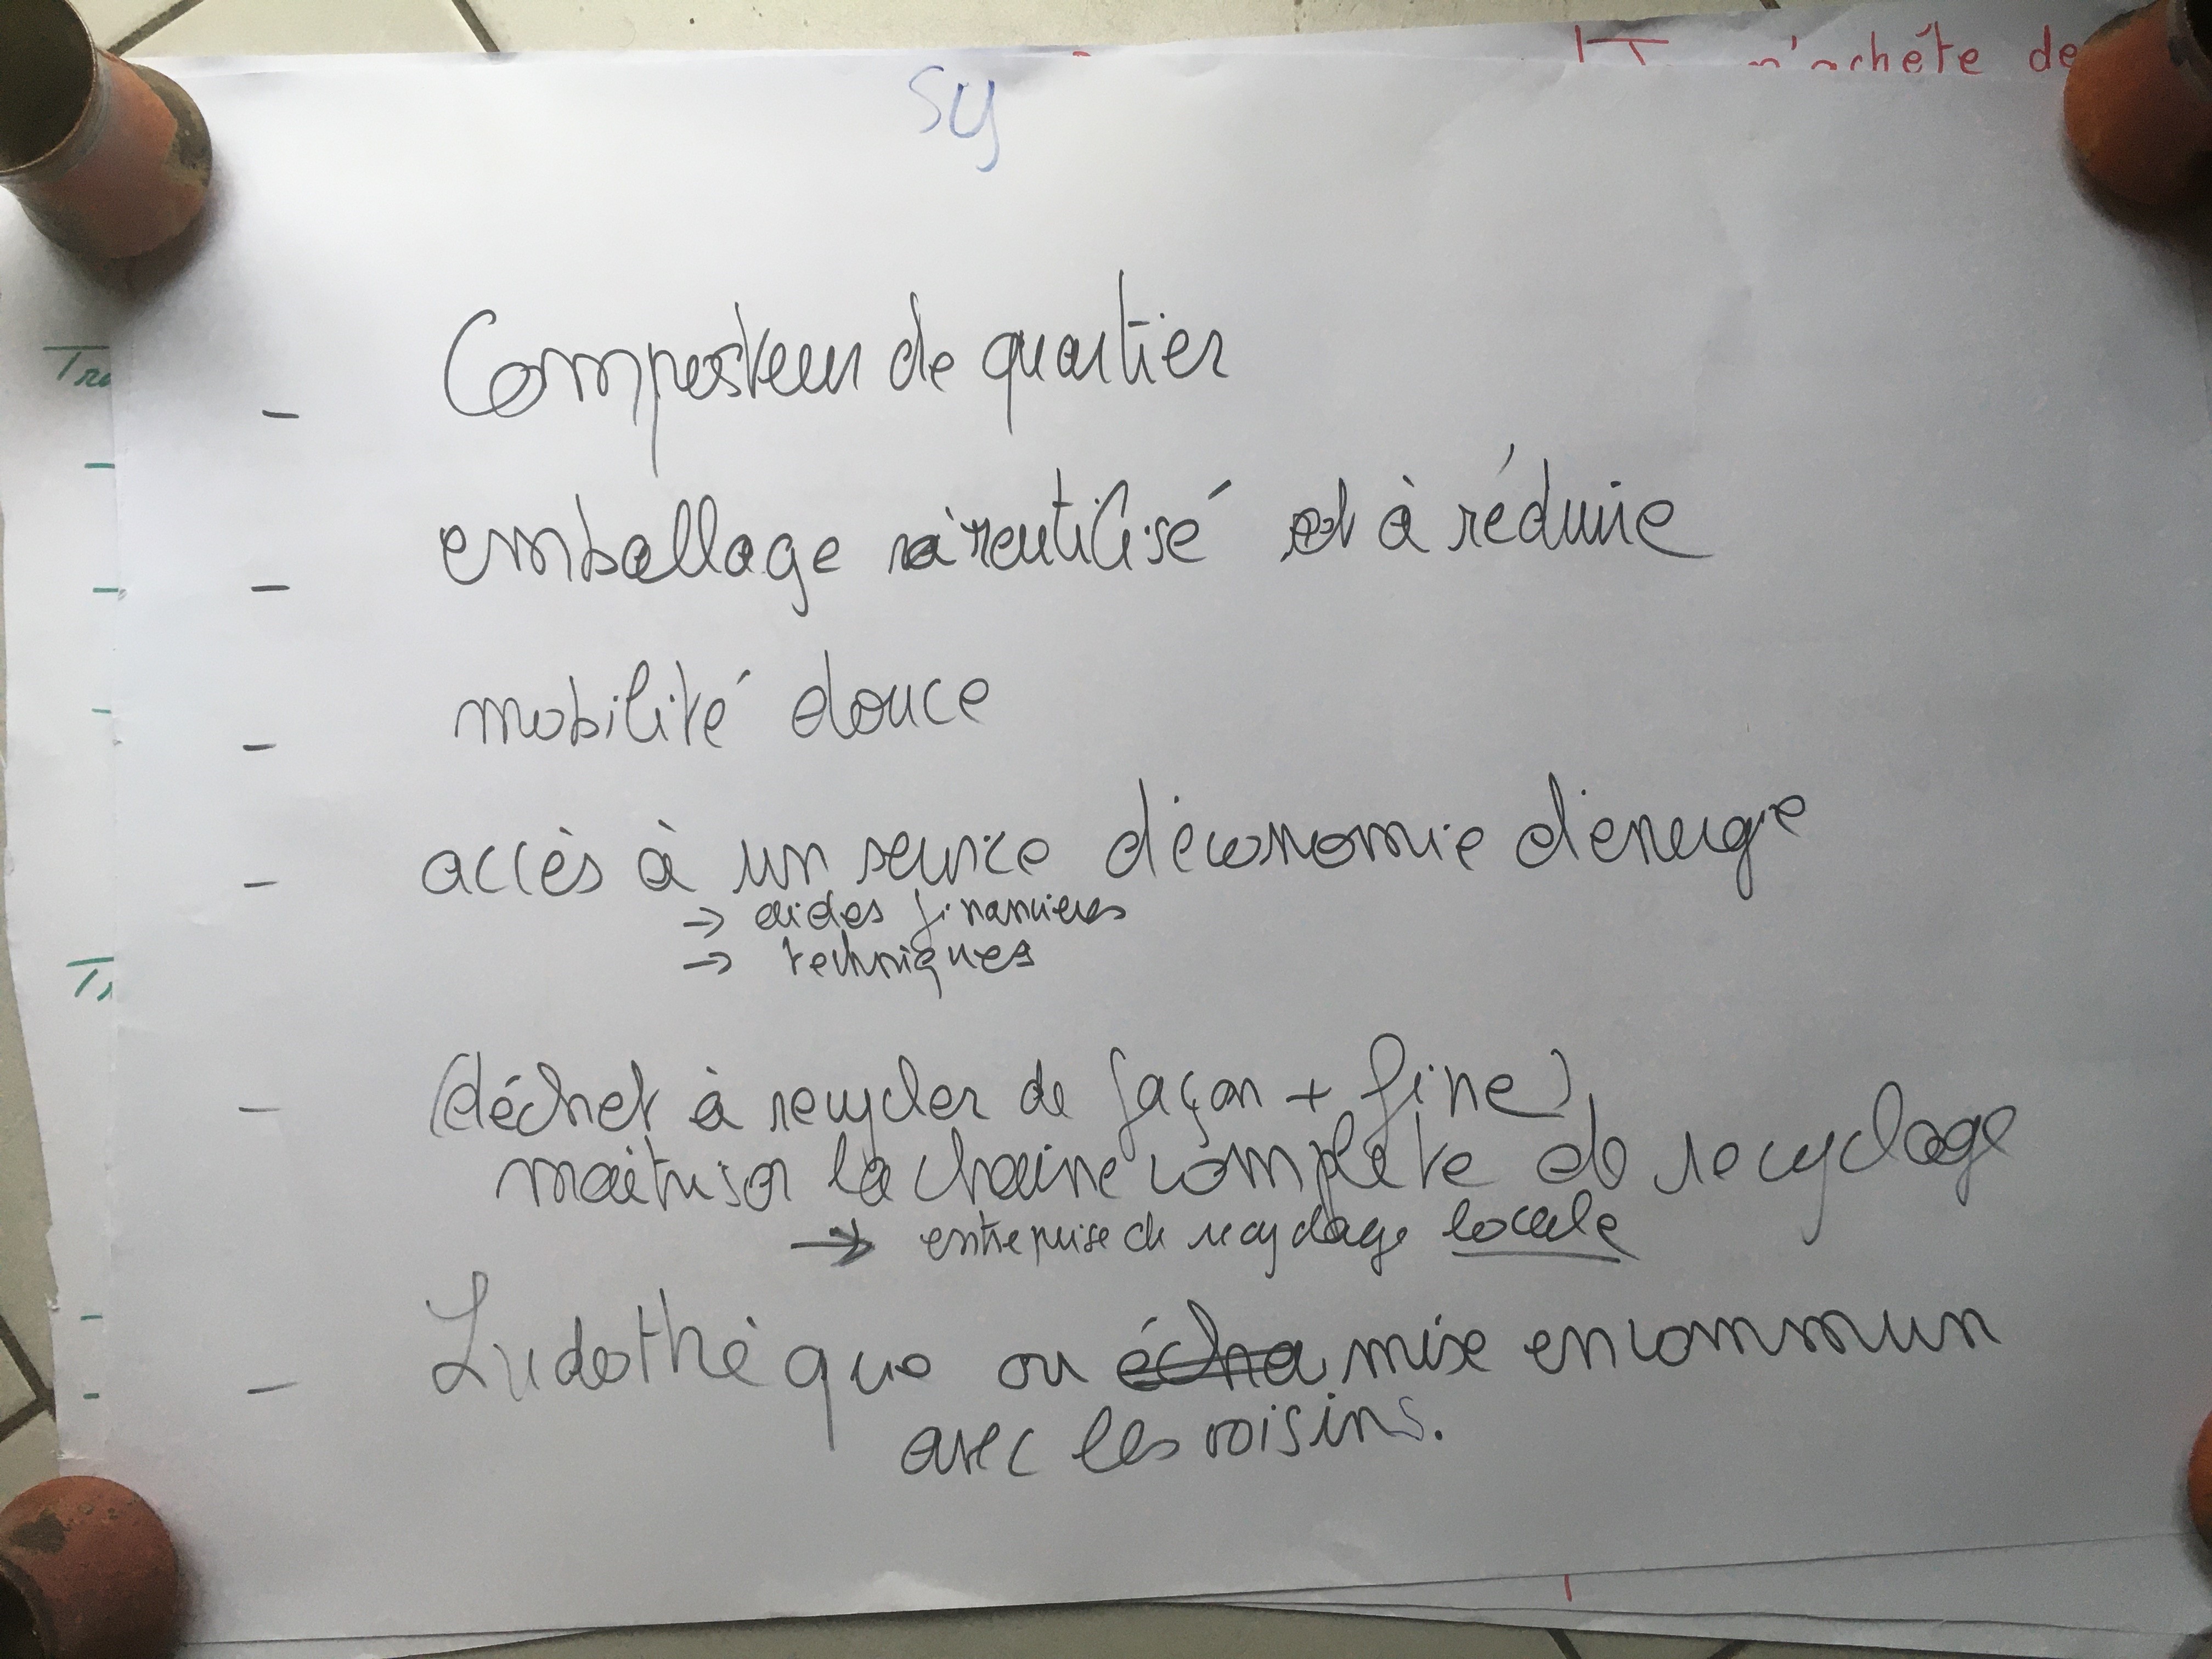 n'achète de
Sy
- Composteur de quartier
- emballage à reutilisé et à réduire
- mobilité douce
- accès à un service d'économie d'énergie
→ aides financières
→ techniques
- (déchet à recycler de façon + fine)
maîtriser la chaine complète de recyclage
→ entreprise de recyclage locale
- Ludothèque ou écha mise en commun
avec les voisins.